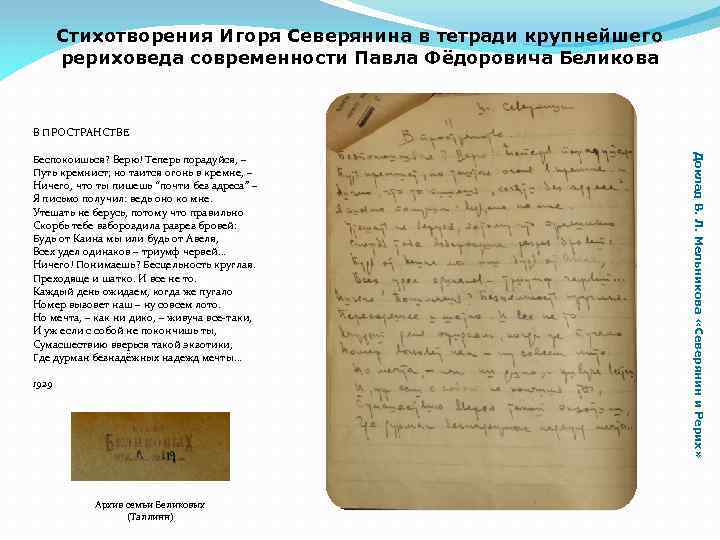 Стихотворения Игоря Северянина в тетради крупнейшего
рериховеда современности Павла Фёдоровича Беликова
В ПРОСТРАНСТВЕ
Беспокоишься? Верю! Теперь порадуйся, –
Путь кремнист; но таится огонь в кремне, –
Ничего, что ты пишешь “почти без адреса” –
Я письмо получил: ведь оно ко мне.
Утешать не берусь, потому что правильно
Скорбь тебе взбороздила разрез бровей:
Будь от Каина мы или будь от Авеля,
Всех удел одинаков – триумф червей...
Ничего! Понимаешь? Бесцельность круглая.
Преходяще и шатко. И все не то.
Каждый день ожидаем, когда же пугало
Номер вызовет наш – ну совсем лото.
Но мечта, – как ни дико, – живуча все-таки,
И уж если с собой не покончишь ты,
Сумасшествию вверься такой экзотики,
Где дурман безнадёжных надежд мечты...
1929
Архив семьи Беликовых
(Таллинн)
Доклад В. Л. Мельникова «Северянин и Рерих»
Иг. Северянин
В пространстве.
Беспокоишься? Верю! Теперь порадуйся
Путь кремнист, но таится огонь в кремне, –
Ничего, что ты пишешь "почти без адреса" –
Я письмо получил: ведь оно ко мне.
Утешать не берусь, потому что правильно
Скорбь тебе взбороздила разрез бровей:
Будь от Каина мы или будь от Авеля,
Всех удел одинаков – триумф червей...
Ничего! Понимаешь? Бесцельность круглая.
Преходяще и шатко. И все не то
Каждый день ожидаем, когда же пугало
Номер вызовет наш – ну совсем лото.
Но мечта, – как ни дико, – живуча все-таки
И уж если с собой не покончишь ты,
Сумасшествию вверься такой экзотики,
Где дурман безнадежных надежд мечты...
БЕЛИКОВЫХ